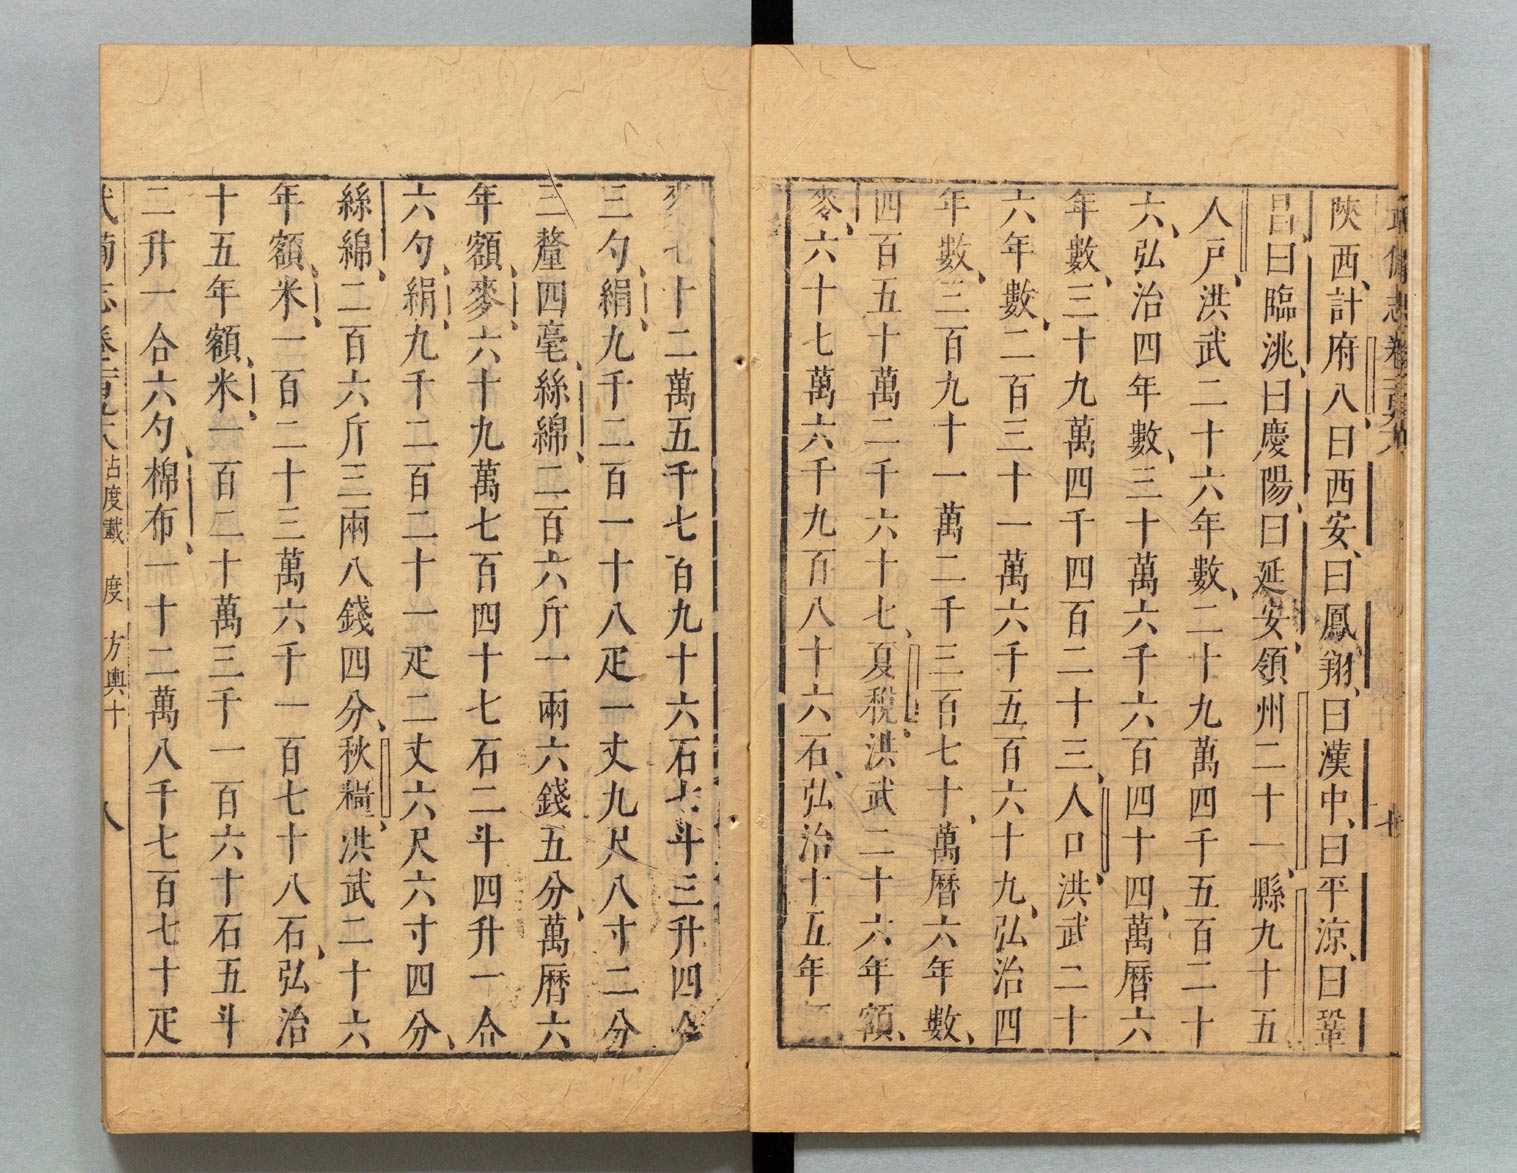 陝西、計府八、曰西安、曰鳳翔、曰漢中、曰平涼、曰鞏
昌曰臨洮、曰慶陽、曰延安、領州二十一、縣九十五
人戸、洪武二十六年數、二十九萬四千五百二十
六、弘治四年數、三十萬六千六百四十四、萬曆六
年數、三十九萬四千四百二十三、人口、洪武二十
六年數、二百三十一萬六千五百六十九、弘治四
年數、三百九十一萬二千三百七十、萬曆六年數、
四百五十萬二千六十七、夏稅、洪武二十六年額、
麥、六十七萬六千九百八十六石、弘治十五年
麥七十二萬五千七百九十六石七斗三升四合
三勺、絹、九千二百一十八疋一丈九尺八寸二分
三釐四毫、絲綿、二百六斤一兩六錢五分、萬曆六
年額、麥、六十九萬七百四十七石二斗四升一合
六勺、絹、九千二百二十一疋二丈六尺六寸四分、
絲綿、二百六斤三兩八錢四分、秋糧、洪武二十六
年額、米、一百二十三萬六千一百七十八石、弘治
十五年額、米、一百二十萬三千一百六十石五斗
二升一合六勺、棉布、一十二萬八千七百七十疋
占度載 度 方輿十 八